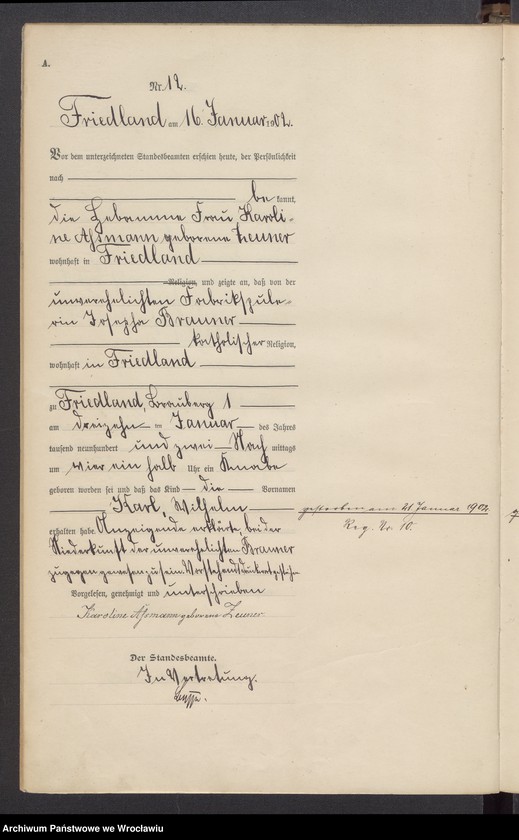 A.
Nr. 12.
Friedland am 16. Januar 1902.
Vor dem unterzeichneten Standesbeamten erschien heute, der Persönlichkeit
nach
be kannt,
die Hebamme Frau Karoli-
ne Aßmann geborene Zeuner
wohnhaft in Friedland
Religion, und zeigte an, daß von der
unverehelichten Fabrikspule-
rin Josepha Brauner
katholischer Religion,
wohnhaft in Friedland
zu Friedland, Brauberg 1
am dreizehn ten Januar des Jahres
tausend neunhundert und zwei Nach mittags
um vier ein halb Uhr ein Knabe
geboren worden sei und daß das Kind die Vornamen
Karl, Wilhelm
gestorben am 21. Januar 1902.
Reg. Nr. 10.
erhalten habe. Anzeigende erklärte, bei der
Niederkunft der unverehelichten Brauner
zugegen gewesen zu sein. Vorstehend
Vorgelesen, genehmigt und unterschrieben
Karoline Aßmann geborene Zeuner
Der Standesbeamte.
In Vertretung.
Archiwum Państwowe we Wrocławiu